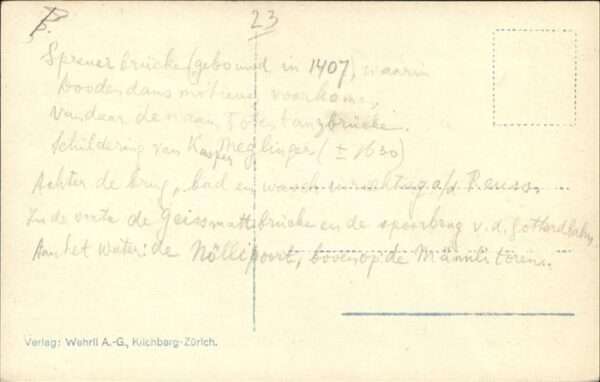 23
Spreuerbrücke (gebouwd in 1407), waarin
doodendans motieven voorkomen,
vandaar de naam Totentanzbrücke.
Schildering van Kasper Meglinger (± 1630)
Achter de brug, bad en wasch inrichting a/d Reuss.
In de verte de Geissmattbrücke en de spoorbrug v.d. Gotthardbahn
Aan het water: de Nölliport, bovenop de Männlitoren.
Verlag: Wehrli A.-G., Kilchberg-Zürich.